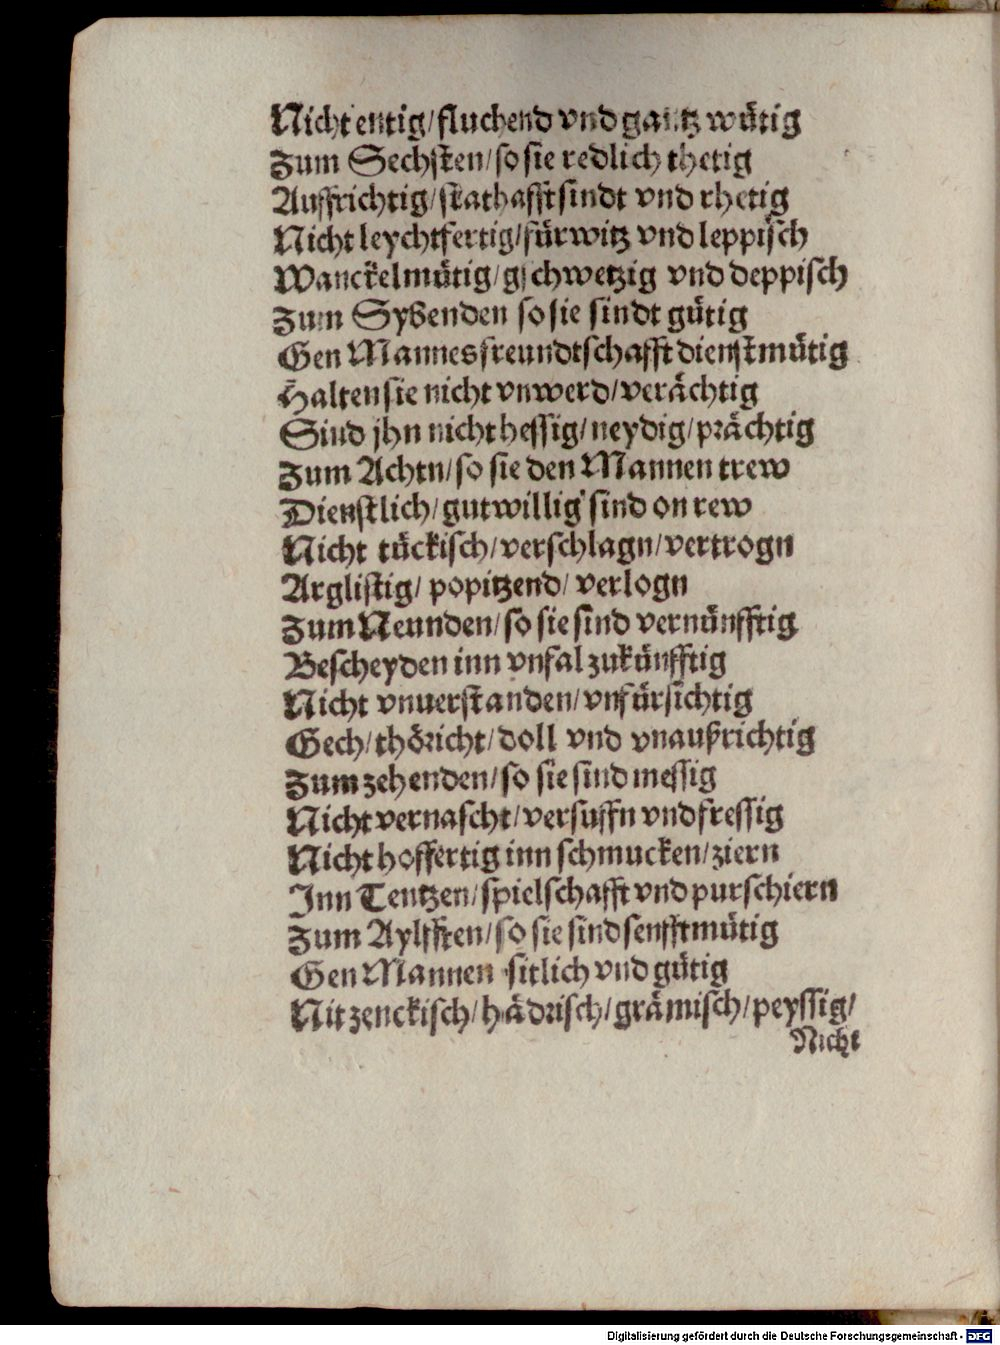 Nicht entig/ fluchend vnd gantz wütig
Zum Sechsten/ so sie redlich thetig
Auffrichtig/ stathafft sindt vnd rhetig
Nicht leychtfertig/ fürwitz vnd leppisch
Wanckelmütig/ gschwetzig vnd deppisch
Zum Sybenden so sie sindt gütig
Gen Mannes freundtschafft dienstmütig
Halten sie nicht vnwerd/ verächtig
Sind jhn nicht hessig/ neydig/ prächtig
Zum Achtn/ so sie den Mannen trew
Dienstlich/ gutwillig sind on rew
Nicht tückisch/ verschlagn/ vertrogn
Arglistig/ popitzend/ verlogn
Zum Neunden/ so sie sind vernünfftig
Bescheyden inn vnfal zukünfftig
Nicht vnuerstanden/ vnfürsichtig
Gech/ thöricht/ doll vnd vnaußrichtig
Zum zehenden/ so sie sind messig
Nicht vernascht/ versuffn vnd fressig
Nicht hoffertig inn schmucken/ ziern
Inn Tentzen/ spielschafft vnd purschiern
Zum Aylfften/ so sie sind senfftmütig
Gen Mannen sitlich vnd gütig
Nit zenckisch/ hädrisch/ grämisch/ peyssig/
Nicht
Digitalisierung gefördert durch die Deutsche Forschungsgemeinschaft - DFG